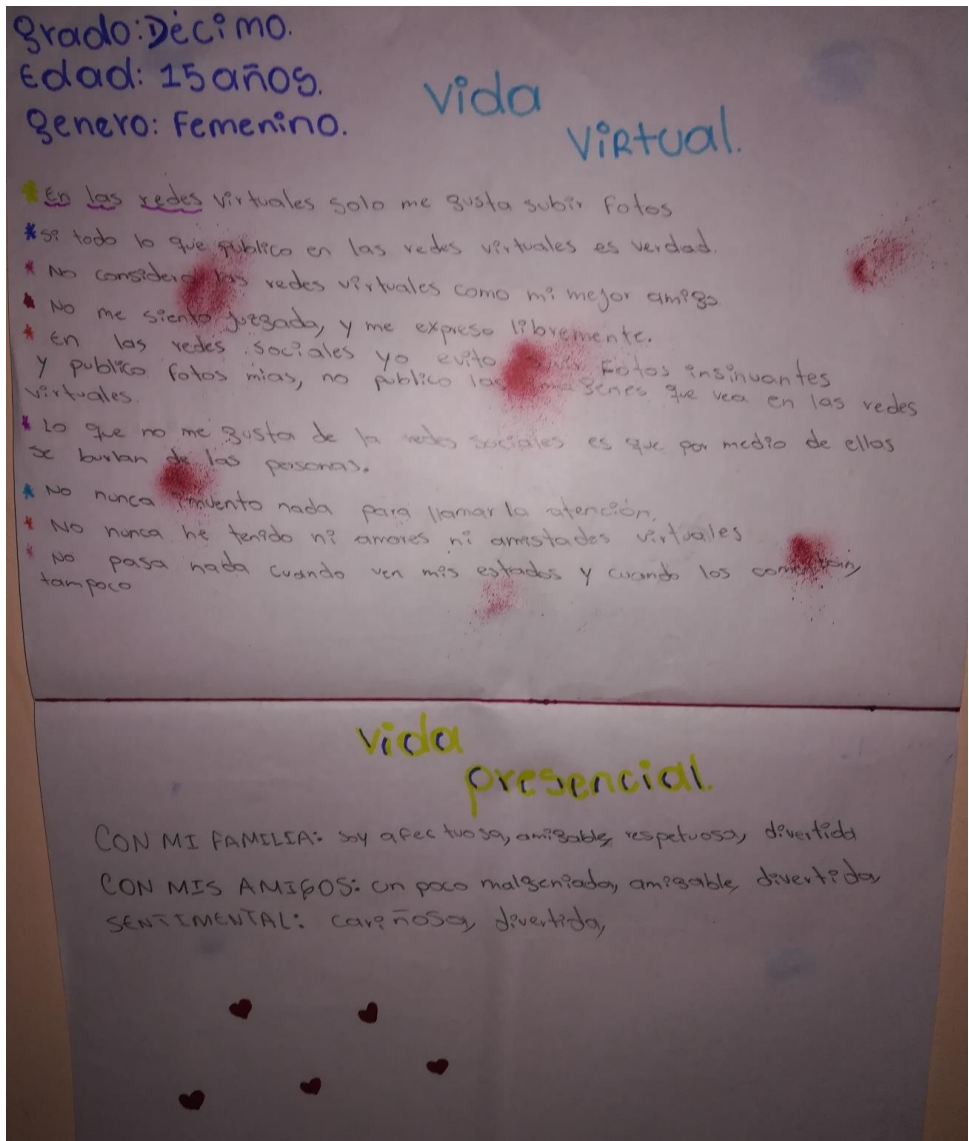 grado: Décimo.
Edad: 15 años.
genero: Femenino.
vida
virtual.
* En las redes virtuales solo me gusta subir fotos
* si todo lo que publico en las redes virtuales es verdad.
* No considero las redes virtuales como mi mejor amigo
* No me siento juzgada, y me expreso libremente.
* En las redes sociales yo evito fotos insinuantes
y publico fotos mias, no publico las imagenes que vea en las redes
virtuales.
* Lo que no me gusta de la redes sociales es que por medio de ellas
se burlan de las personas.
* No nunca invento nada para llamar la atención,
* No nunca he tenido ni amores ni amistades virtuales
* No pasa nada cuando ven mis estados y cuando los comentan,
tampoco
vida
presencial.
CON MI FAMILIA: soy afectuosa, amigable, respetuosa, divertida
CON MIS AMIGOS: un poco malgeniada, amigable, divertida,
SENTIMENTAL: cariñosa, divertida,